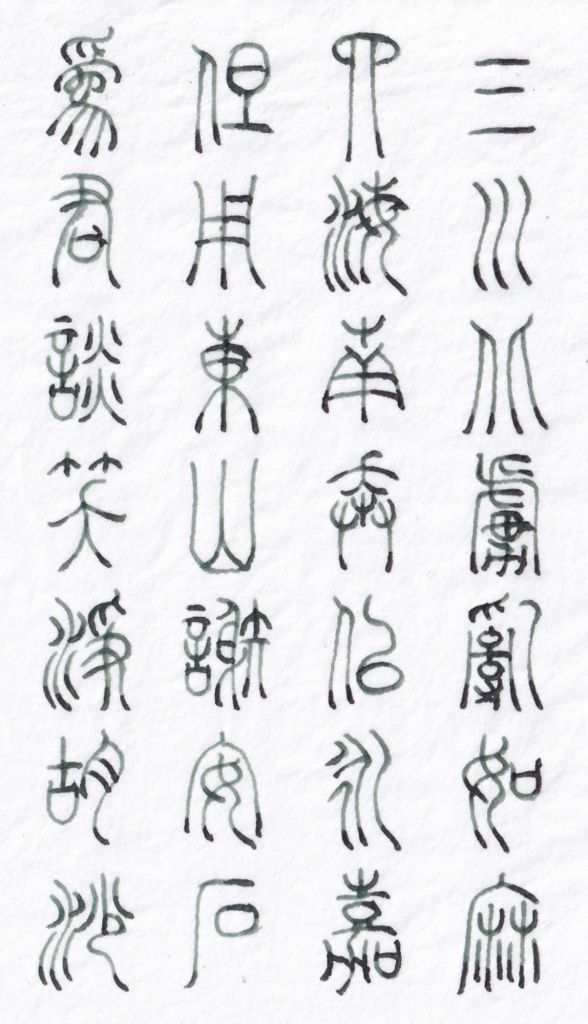 三川北虜亂如麻
四海南奔似永嘉
但用東山謝安石
爲君談笑淨胡沙